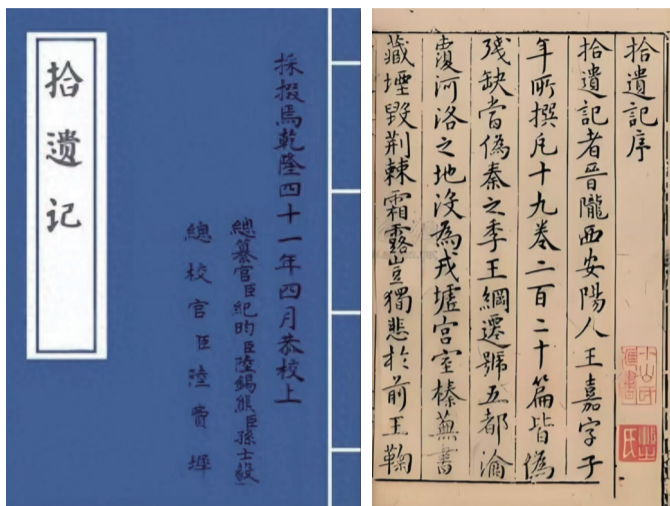 採掇焉乾隆四十一年四月恭校上
總纂官臣紀昀臣陸錫熊臣孫士毅
總校官臣陸費墀
拾遗记
拾遺記序
拾遺記者晉隴西安陽人王嘉字子
年所撰凡十九卷二百二十篇皆偽
殘缺當偽秦之季王綱遷號五都淪
覆河洛之地没為戎墟宫室榛蕪書
藏堙毀荆棘霜露豈獨悲於前王鞠